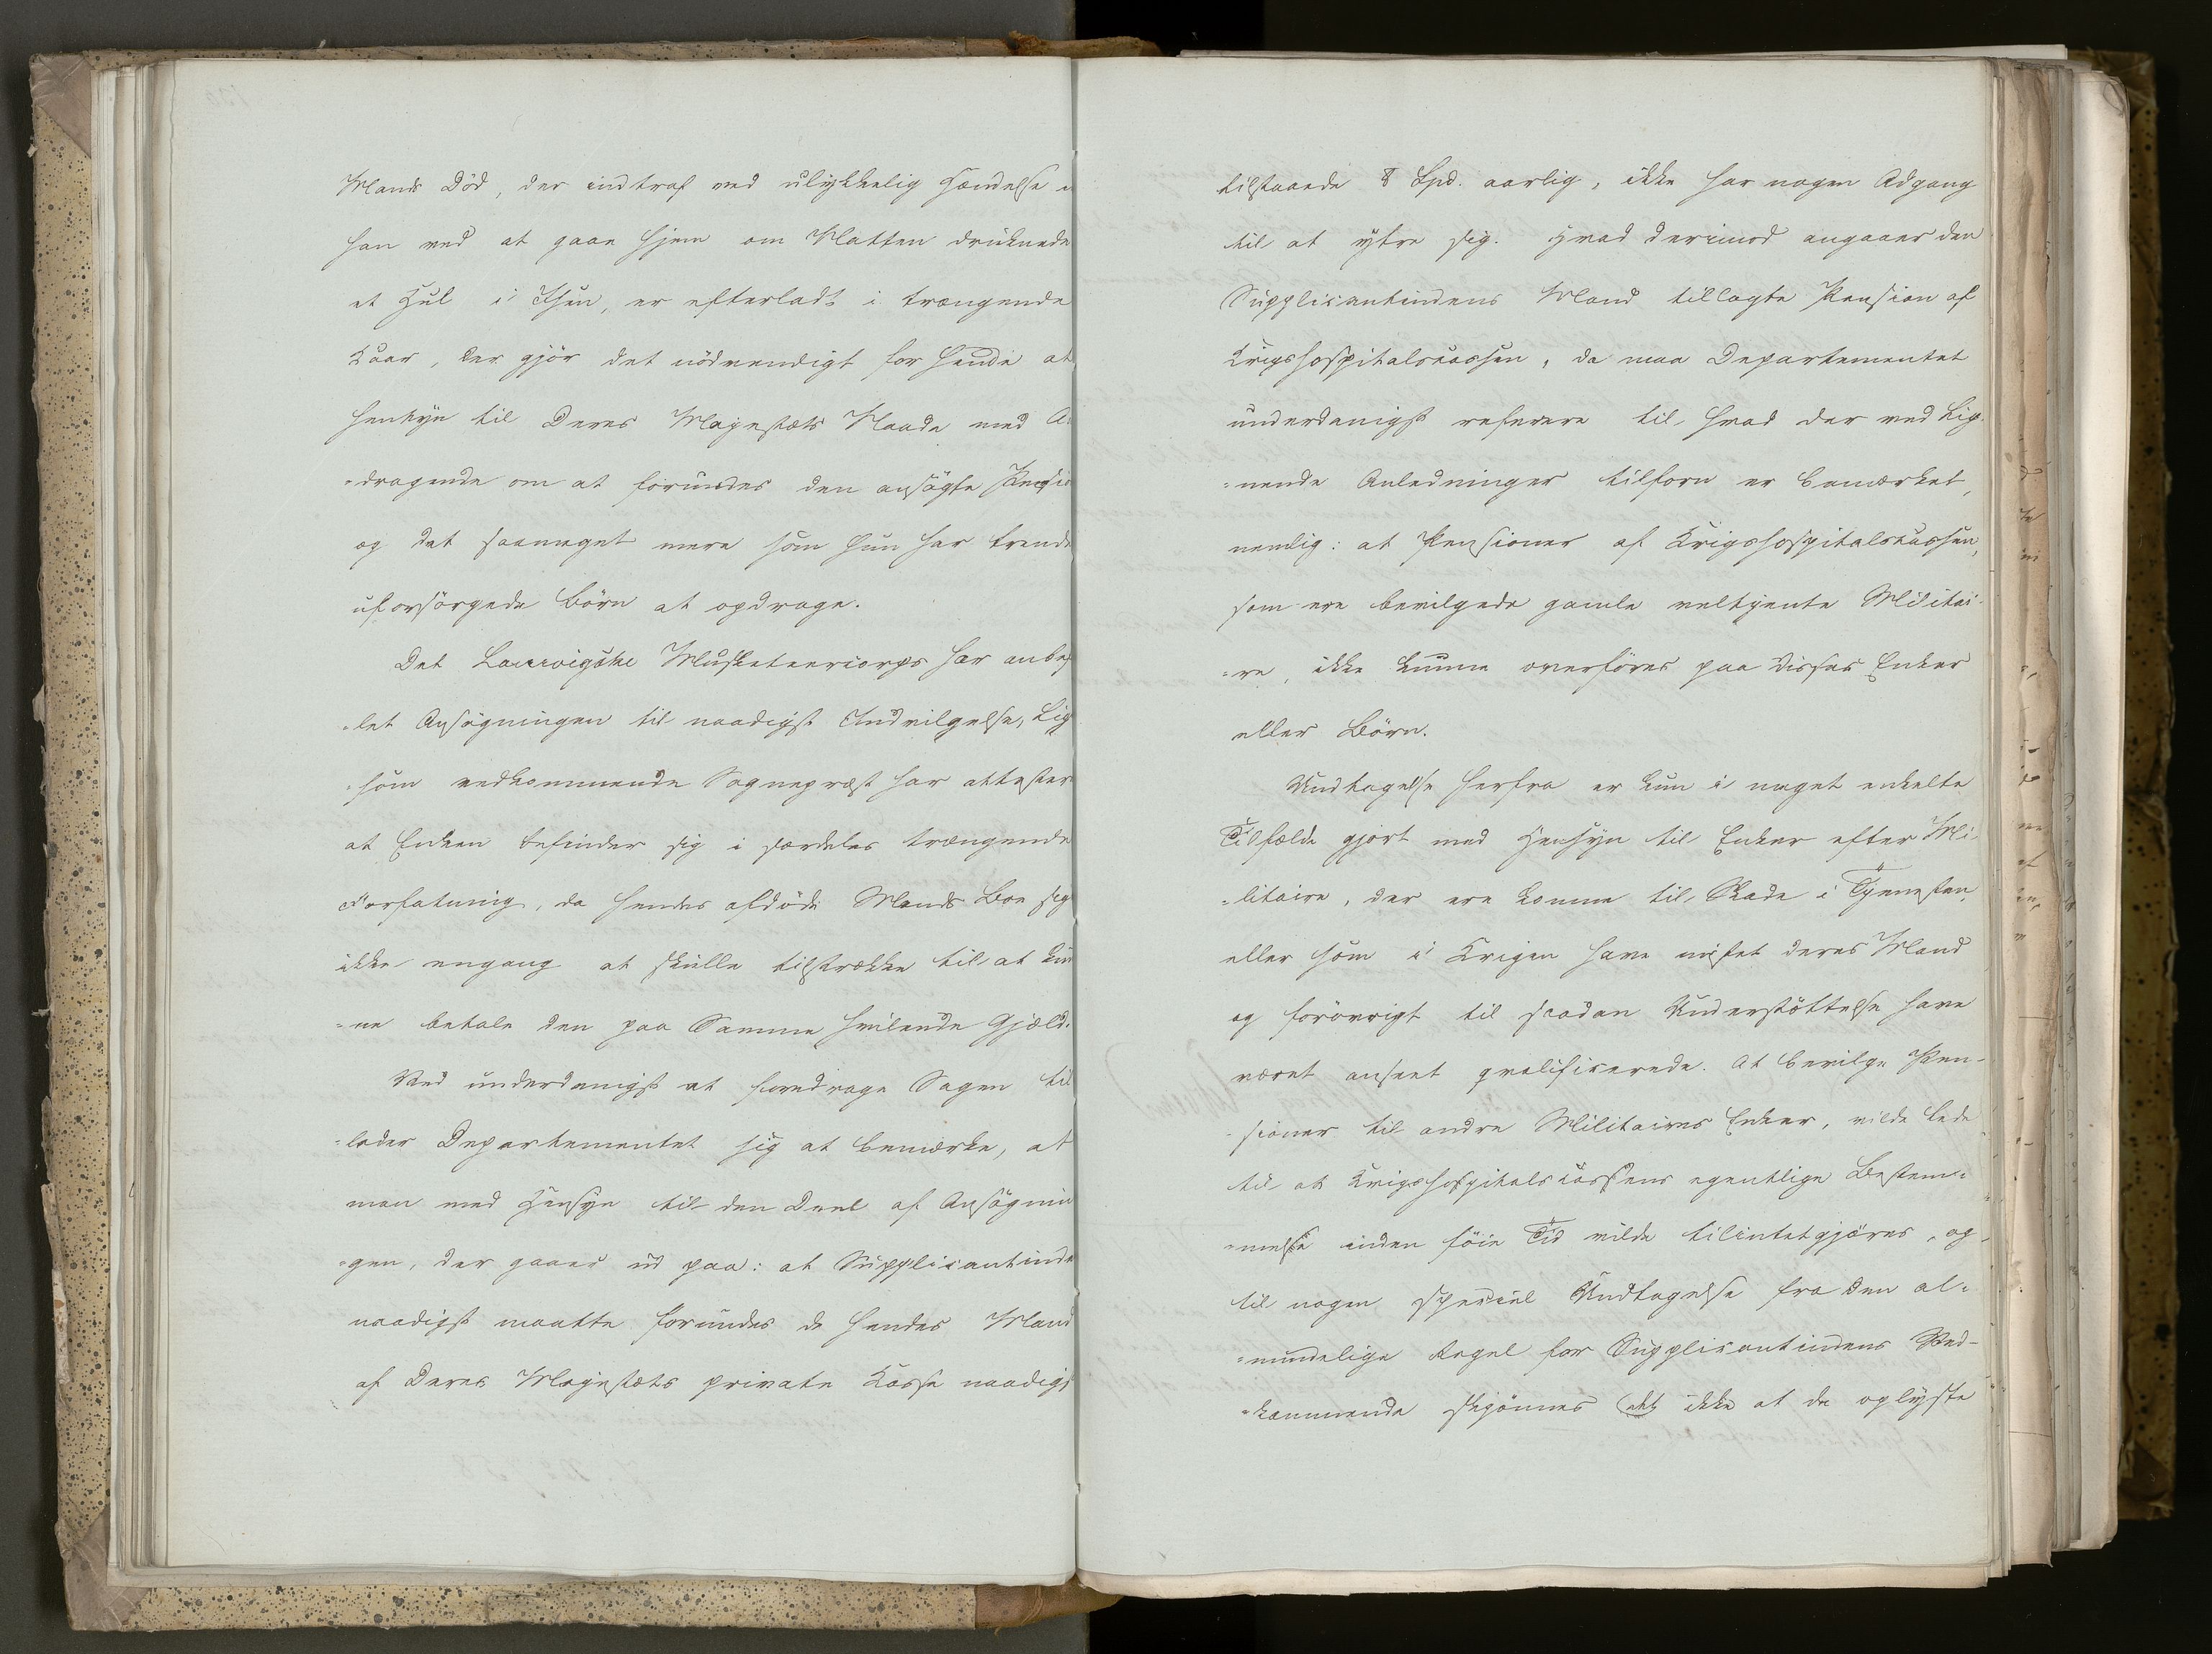 Mands Död, der indtraf ved ulykkelig Hændelse i
han ved at gaae hjem om Natten druknede
et Hul i Isen, er efterladt i trængende
Kaar, der gjör det nödvendigt for hende at
henflye til Deres Majestæts Naade med A
-dragende om at forundes den ansögte Pensio
og det saameget mere som hun har trende
uforsörgede Börn at opdrage.
Det Laurvigske Musketeercorps har anbef
-let Ansögningen til naadigst Indvilgelse, lig
-som vedkommende Sognepræst har attester
at Enken befinder sig i særdeles trængende
Forfatning, da hendes afdöde Mands Boe sig
ikke engang at skulle tilstrække til at kun
-ne betale den paa Samme hvilende Gjæld.
Ved underdanigst at foredrage Sagen til
-lader Departementet sig at bemærke, at
man med Hensyn til den Deel af Ansögnin
-gen, der gaaer ud paa: at Supplicantinde
naadigst maatte forundes de hendes Mand
af Deres Majestæts private Kasse naadigs
tilstaaede 8 Spd. aarlig, ikke har nogen Adgang
til at yttre sig. Hvad derimod angaaer den
Supplicantindens Mand tillagte Pension af
Krigshospitalskassen, da maa Departementet
underdanigst referere til hvad der ved lig
-nende Anledninger tilforn er bemærket,
nemlig: at Pensioner af Krigshospitalskassen,
som ere bevilgede gamle veltjente Militai-
-re, ikke kunne overföres paa disses Enker
eller Börn.
Undtagelse herfra er kun i noget enkelte
Tilfælde gjort med Hensyn til Enker efter Mi-
-litaire, der ere komne til Skade i Tjenesten,
eller som i Krigen have mistet deres Mand
og forövrigt til saadan Understöttelse have
været anseet qvalificerede. At bevilge Pen-
-sioner til andre Militaires Enker, vilde lede
til at Krigshospitalskassens egentlige Bestem-
-melse inden föie Tid vilde tilintetgjöres, og
til nogen speciel Undtagelse fra den al-
-mindelige Regel for Supplicantindens Ved-
-kommende skjönnes ikke at de oplyste